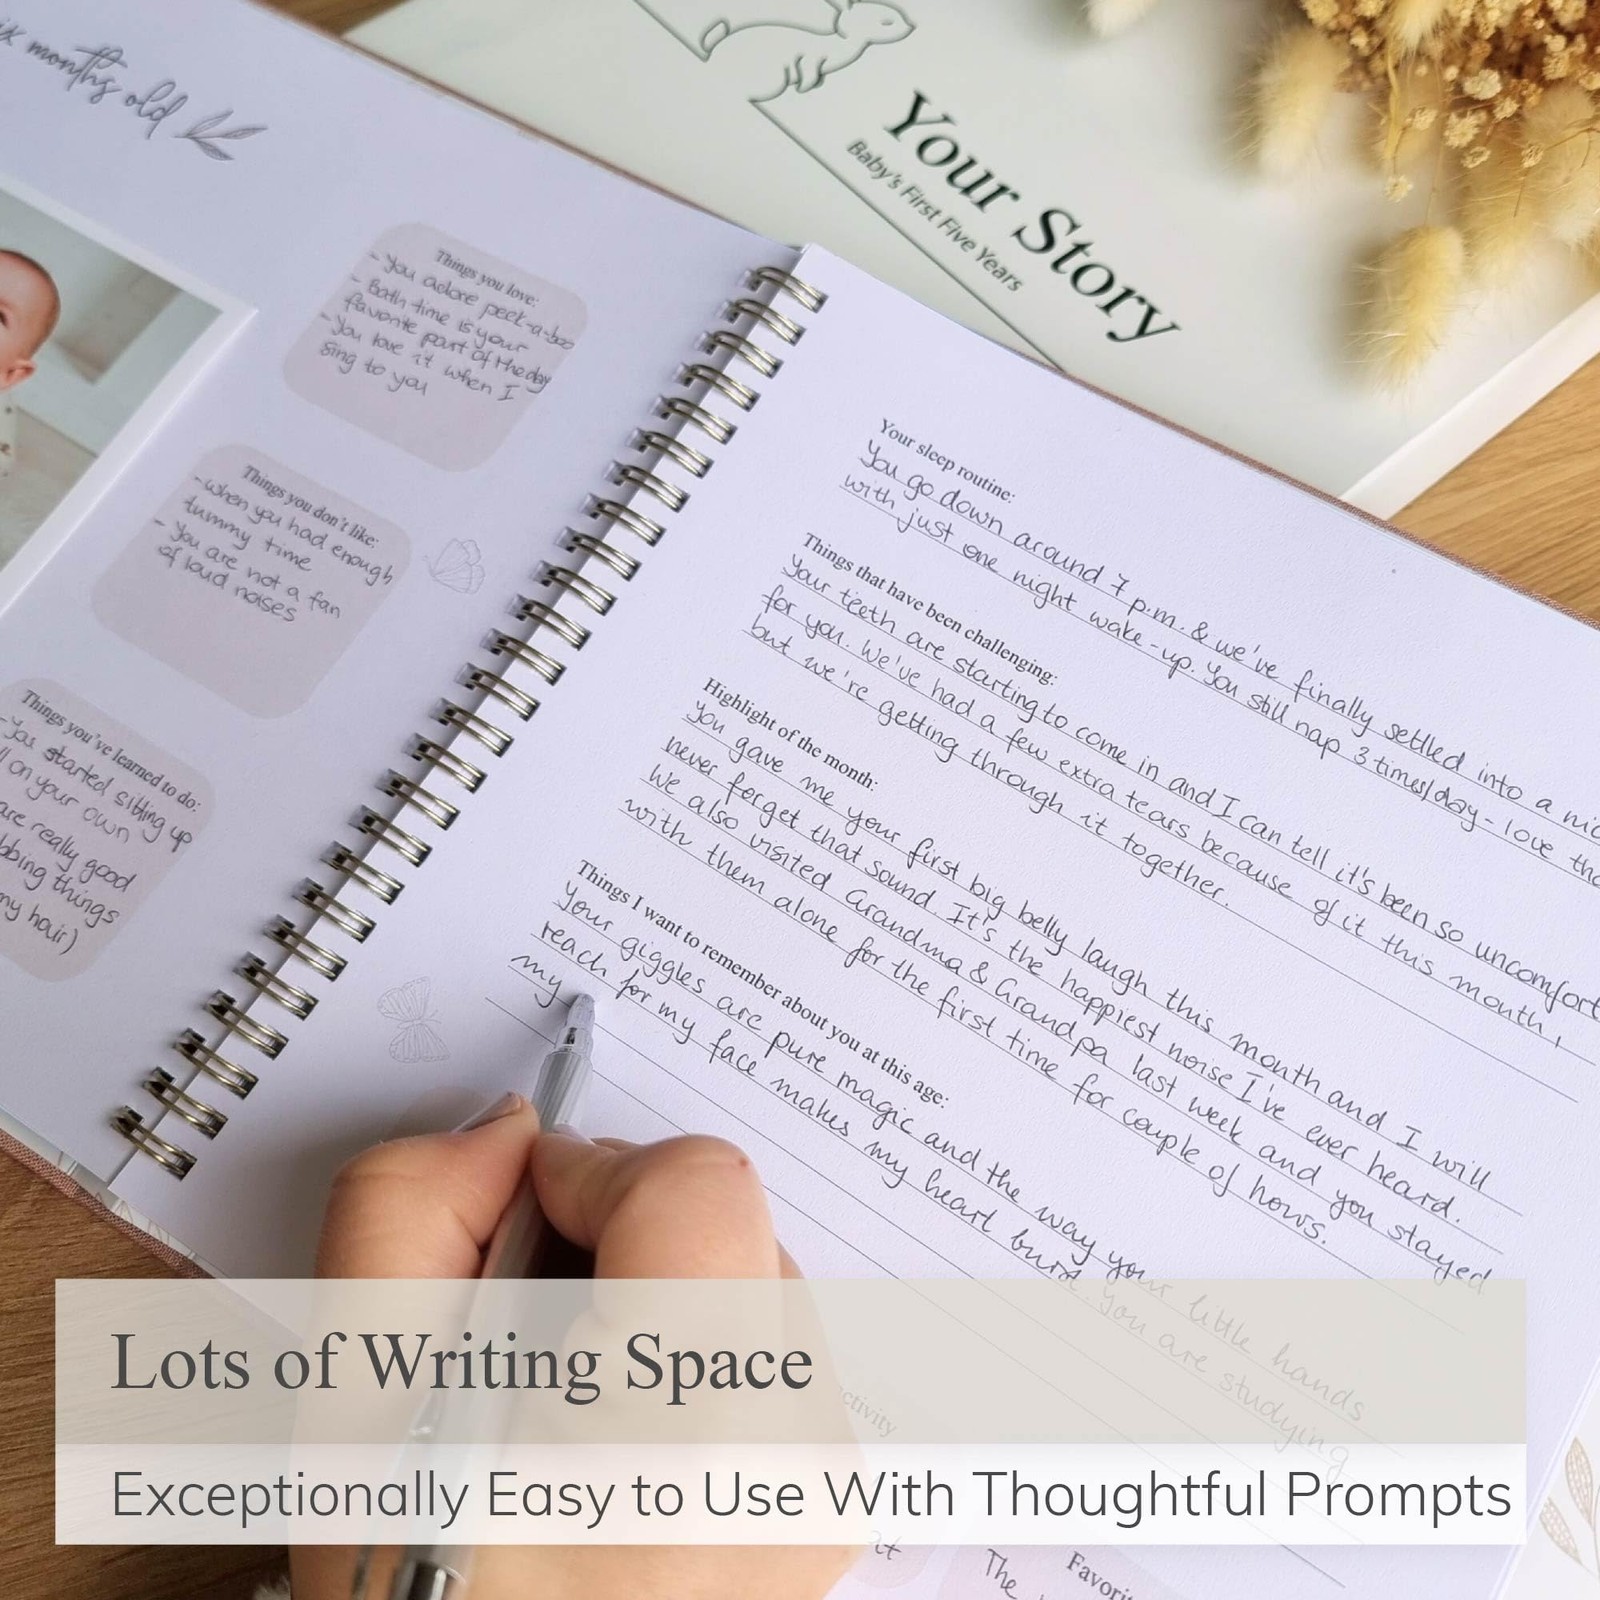 six months old
Your Story
Baby's First Five Years
Things you love:
- You adore peek-a-boo
- Bath time is your
favorite part of the day
- You love it when I
sing to you
Things you don't like:
- When you had enough
tummy time
- You are not a fan
of loud noises
Things you've learned to do:
- You started sitting up
on your own
are really good
things
my hair)
Your sleep routine:
You go down around 7 p.m. & we've finally settled into a
with just one night wake-up. You still nap 3 times/day - love
Things that have been challenging:
Your teeth are starting to come in and I can tell it's been so
for you. We've had a few extra tears because of it this month,
but we're getting through it together.
Highlight of the month:
You gave me your first big belly laugh this month and I will
never forget that sound. It's the happiest noise I've ever heard.
We also visited Grandma & Grandpa last week and you stayed
with them alone for the first time for couple of hours.
Things I want to remember about you at this age:
Your giggles are pure magic and the way your little hands
reach for my face makes my heart burst. You are studying
my
Lots of Writing Space
Exceptionally Easy to Use With Thoughtful Prompts
The